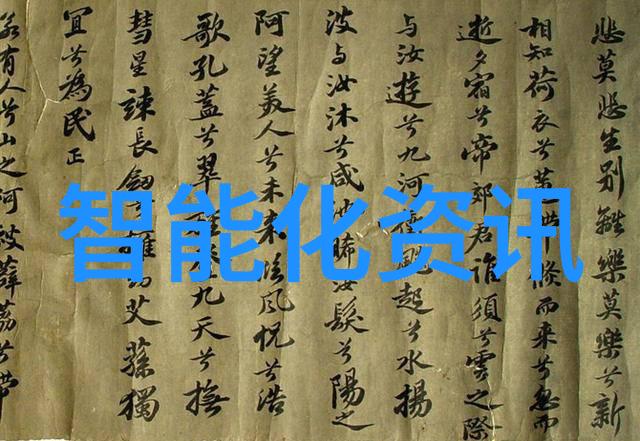 悲莫悲生别離樂莫樂兮新
相知荷衣兮蕙帶倏而来兮忽而
逝夕宿兮帝郊君誰須兮雲之際
与汝遊兮九河衝飈起兮水揚
波与汝沐兮咸池晞汝髮兮陽之
阿望美人兮未来臨風怳兮浩
歌孔蓋兮翠九天兮撫
彗星竦長劍艾蓀獨
宜兮為民正
若有人兮山之阿被薜荔兮帶
智能化资讯